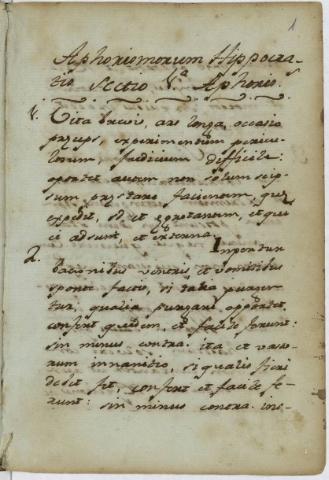 1
Aphorismorum Hippocra-
tis Sectio 1.ª Aphoris.
1. Vita brevis, ars longa, occasio
præceps, experimentum pericu-
losum judicium difficile:
oportet autem non solum seip-
sum præstare facientem, quæ
expedit, sed et ægrotantem, et qui
ei adsunt, et externa.
In pertur
2. bationibus ventris, et vomitibus
sponte factis, si talia purgen-
tur, qualia purgari opportet
confert quidem, et facile ferunt:
sin minus contra. ita et vaso-
rum innanitio, si qualis fieri
debet fit, confert et facile fe-
runt: sin minus contra. ins-